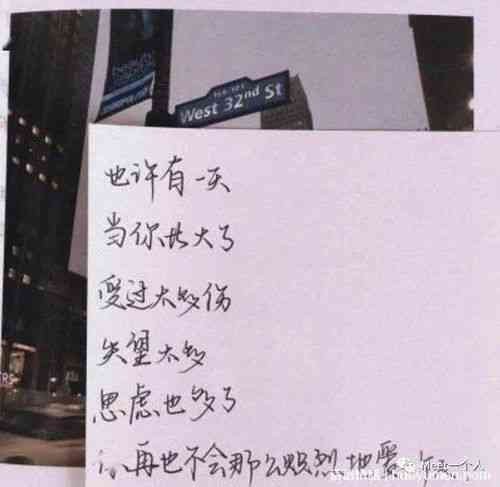 beauty
West 32nd St
也许有一天
当你长大了
受过太多伤
失望太多
思虑也多了
你再也不会那么炽烈地爱
一个人